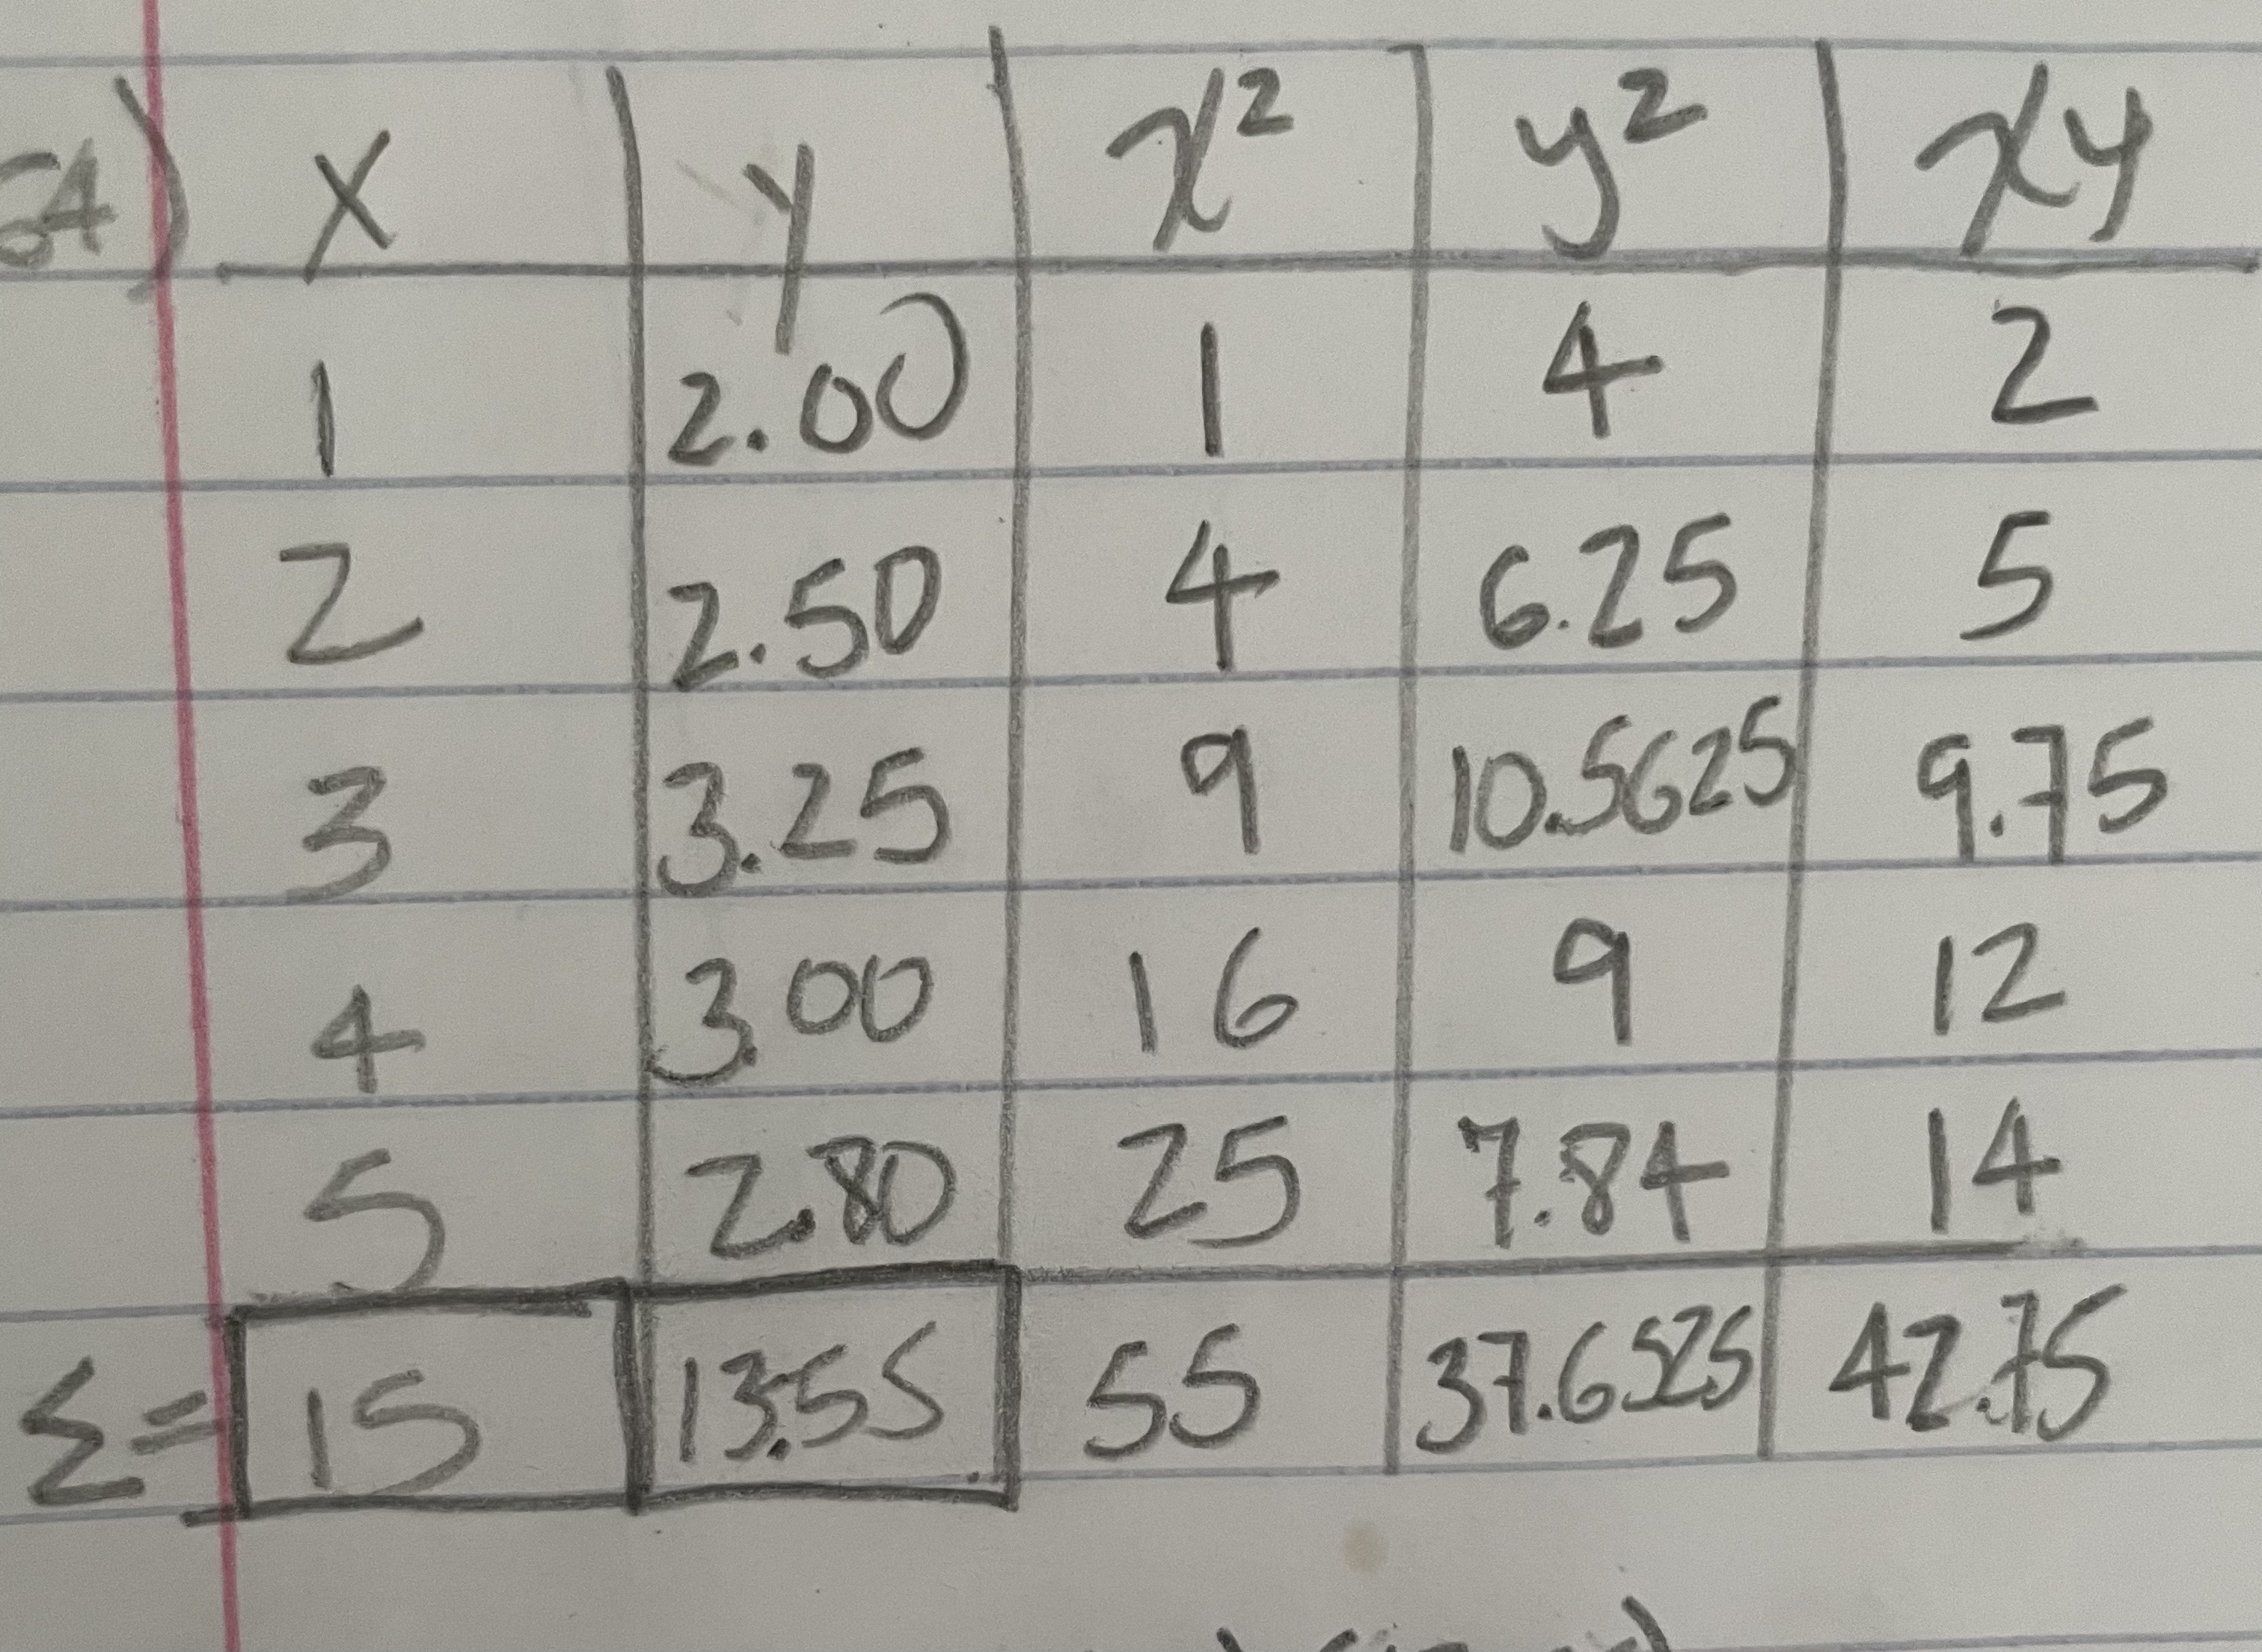 64) x y x² y² xy
1 2.00 1 4 2
2 2.50 4 6.25 5
3 3.25 9 10.5625 9.75
4 3.00 16 9 12
5 2.80 25 7.84 14
Σ= 15 13.55 55 37.6525 42.75